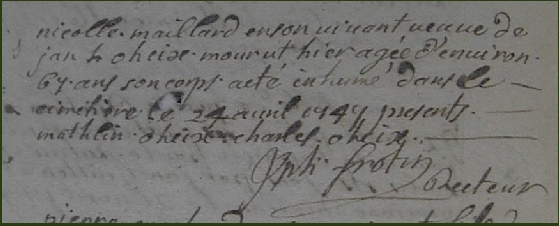 nicolle maillard en son vivant veuve de
jan h oheix mourut hier agée d'environ
65 ans son corps a eté inhumé dans le
cimetiere le 24 avril 1747 presents
mathlin oheix charles oheix
frotin
Recteur
pierre